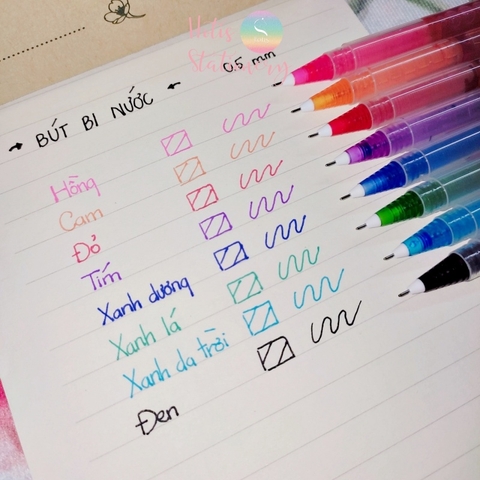 Hutis Stationery
0.5 mm
→ BÚT BI NƯỚC ←
Hồng
Cam
Đỏ
Tím
Xanh dương
Xanh lá
Xanh da trời
Đen